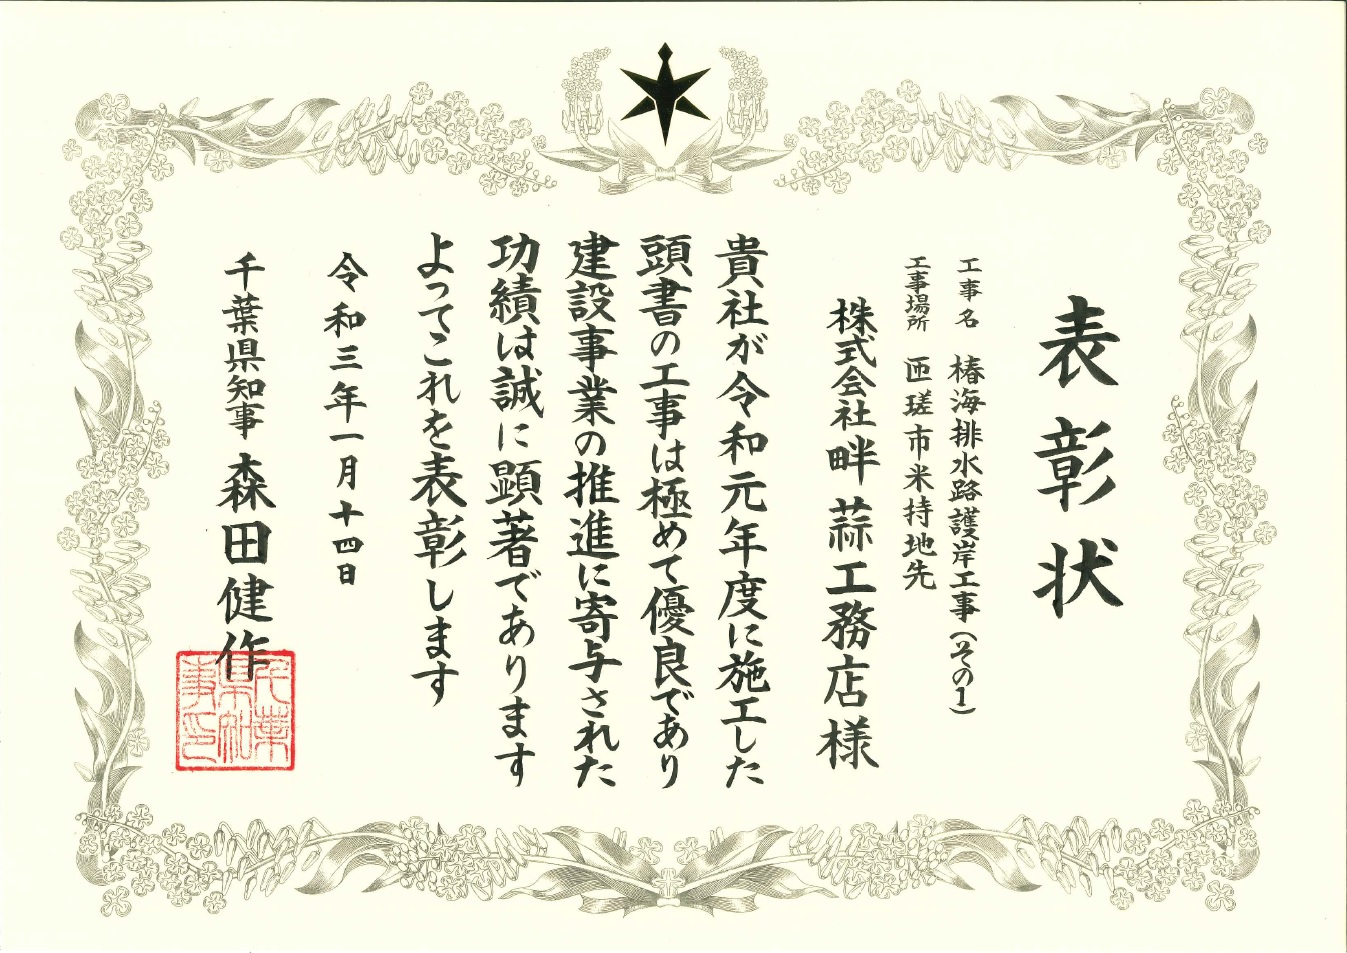 表彰状
工事名　椿海排水路護岸工事（その1）
工事場所　匝瑳市米持地先
株式会社畔蒜工務店様
貴社が令和元年度に施工した
頭書の工事は極めて優良であり
建設事業の推進に寄与された
功績は誠に顕著であります
よってこれを表彰します
令和三年一月十四日
千葉県知事　森田健作
千葉
県知
事印